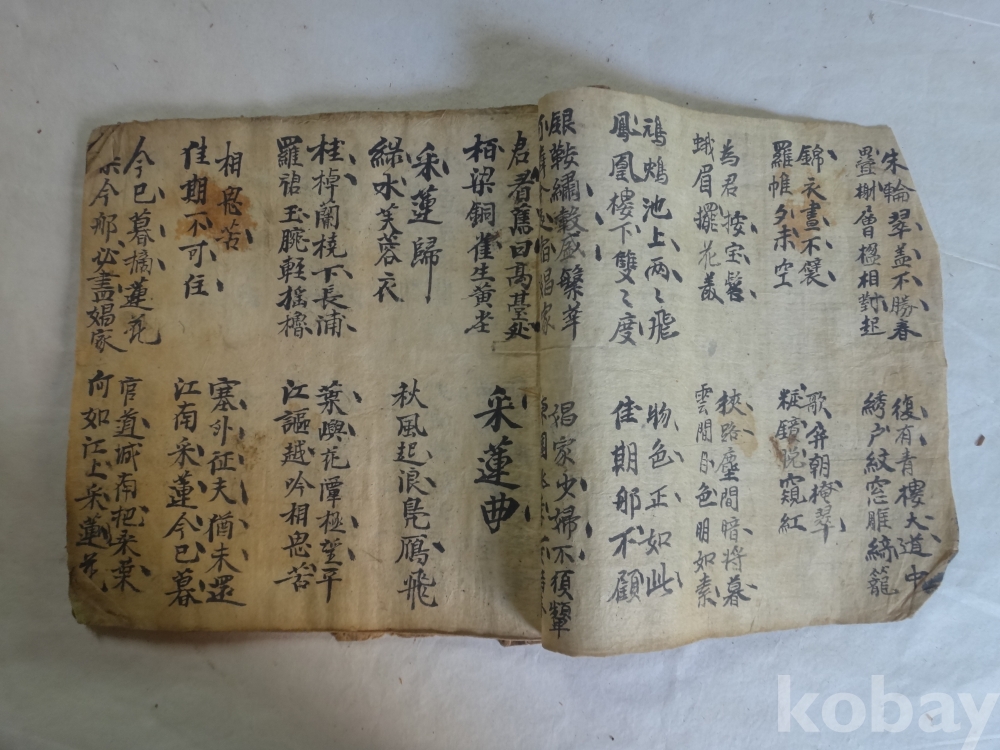 朱輪翠盖不勝春
疊榭層楹相對起
復有青樓大道中
綉户紋窓雕綺籠
錦衣晝不襞
羅帷夕未空
歌屏朝掩翠
粧鏡晩窺紅
為君按宝髻
蛾眉擺花叢
狹路塵間暗將暮
雲間月色明如素
鴛鴦池上两〻飛
鳳凰樓下雙〻度
物色正如此
佳期那不顧
銀鞍繡轂盛繁華
娼家少婦不須顰
君看舊日高臺処
栢梁銅雀生黄尘
采蓮曲
采蓮歸
緑水芙蓉衣
秋風起浪鳧鴈飛
桂棹蘭橈下長浦
羅裙玉腕軽揺櫓
葉嶼花潭極望平
江謳越吟相思苦
相思苦
佳期不可住
塞外征夫猶未還
江南采蓮今已暮
今已暮摘蓮花
今那必盡娼家
官道城南把桒葉
何如江上采蓮花